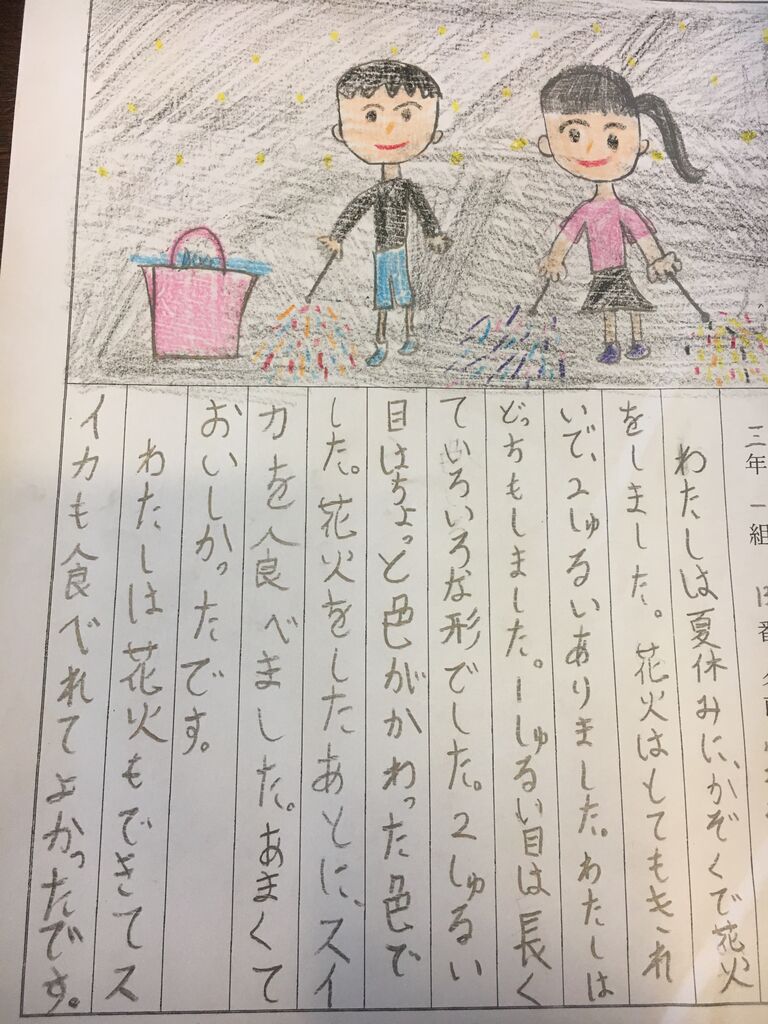 三年 一組
わたしは夏休みに、かぞくで花火
をしました。花火はとてもきれ
いで、2しゅるいありました。わたしは
どっちもしました。1しゅるい目は長く
ていろいろな形でした。2しゅるい
目はちょっと色がかわった色で
した。花火をしたあとに、スイ
カを食べました。あまくて
おいしかったです。
わたしは花火もできてス
イカも食べれてよかったです。